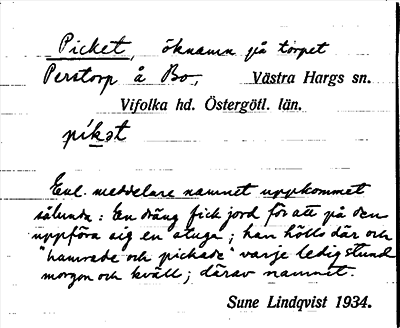 Picket, öknamn på torpet
Perstorp å Bo, Västra Hargs sn.
Vifolka hd. Östergötl. län.
pikət
Enl. meddelare namnet uppkommet
sålunda: En dräng fick jord för att på den
uppföra sig en stuga; han hölls där och
"hamrade och pickade" varje ledig stund
morgon och kväll; därav namnet.
Sune Lindqvist 1934.